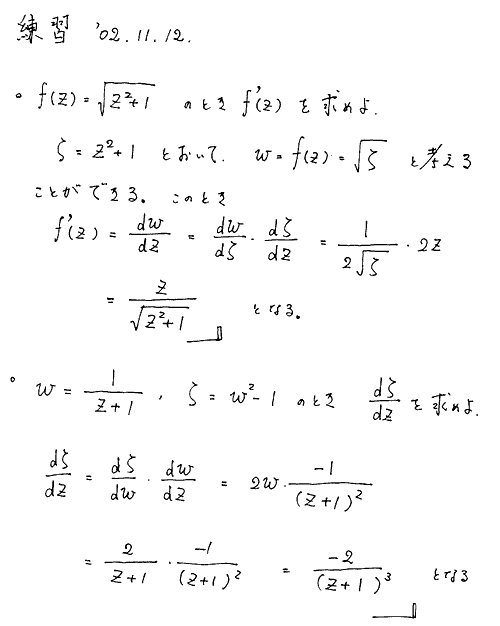 練習 '02.11.12.
。f(z) = √(z²+1) のとき f'(z) を求めよ.
ζ = z²+1 とおいて. w = f(z) = √ζ と考える
ことができる。このとき
f'(z) = dw/dz = dw/dζ · dζ/dz = 1/(2√ζ) · 2z
= z/√(z²+1) となる。
。w = 1/(z+1) , ζ = w²-1 のとき dζ/dz を求めよ.
dζ/dz = dζ/dw · dw/dz = 2w · -1/(z+1)²
= 2/(z+1) · -1/(z+1)² = -2/(z+1)³ となる